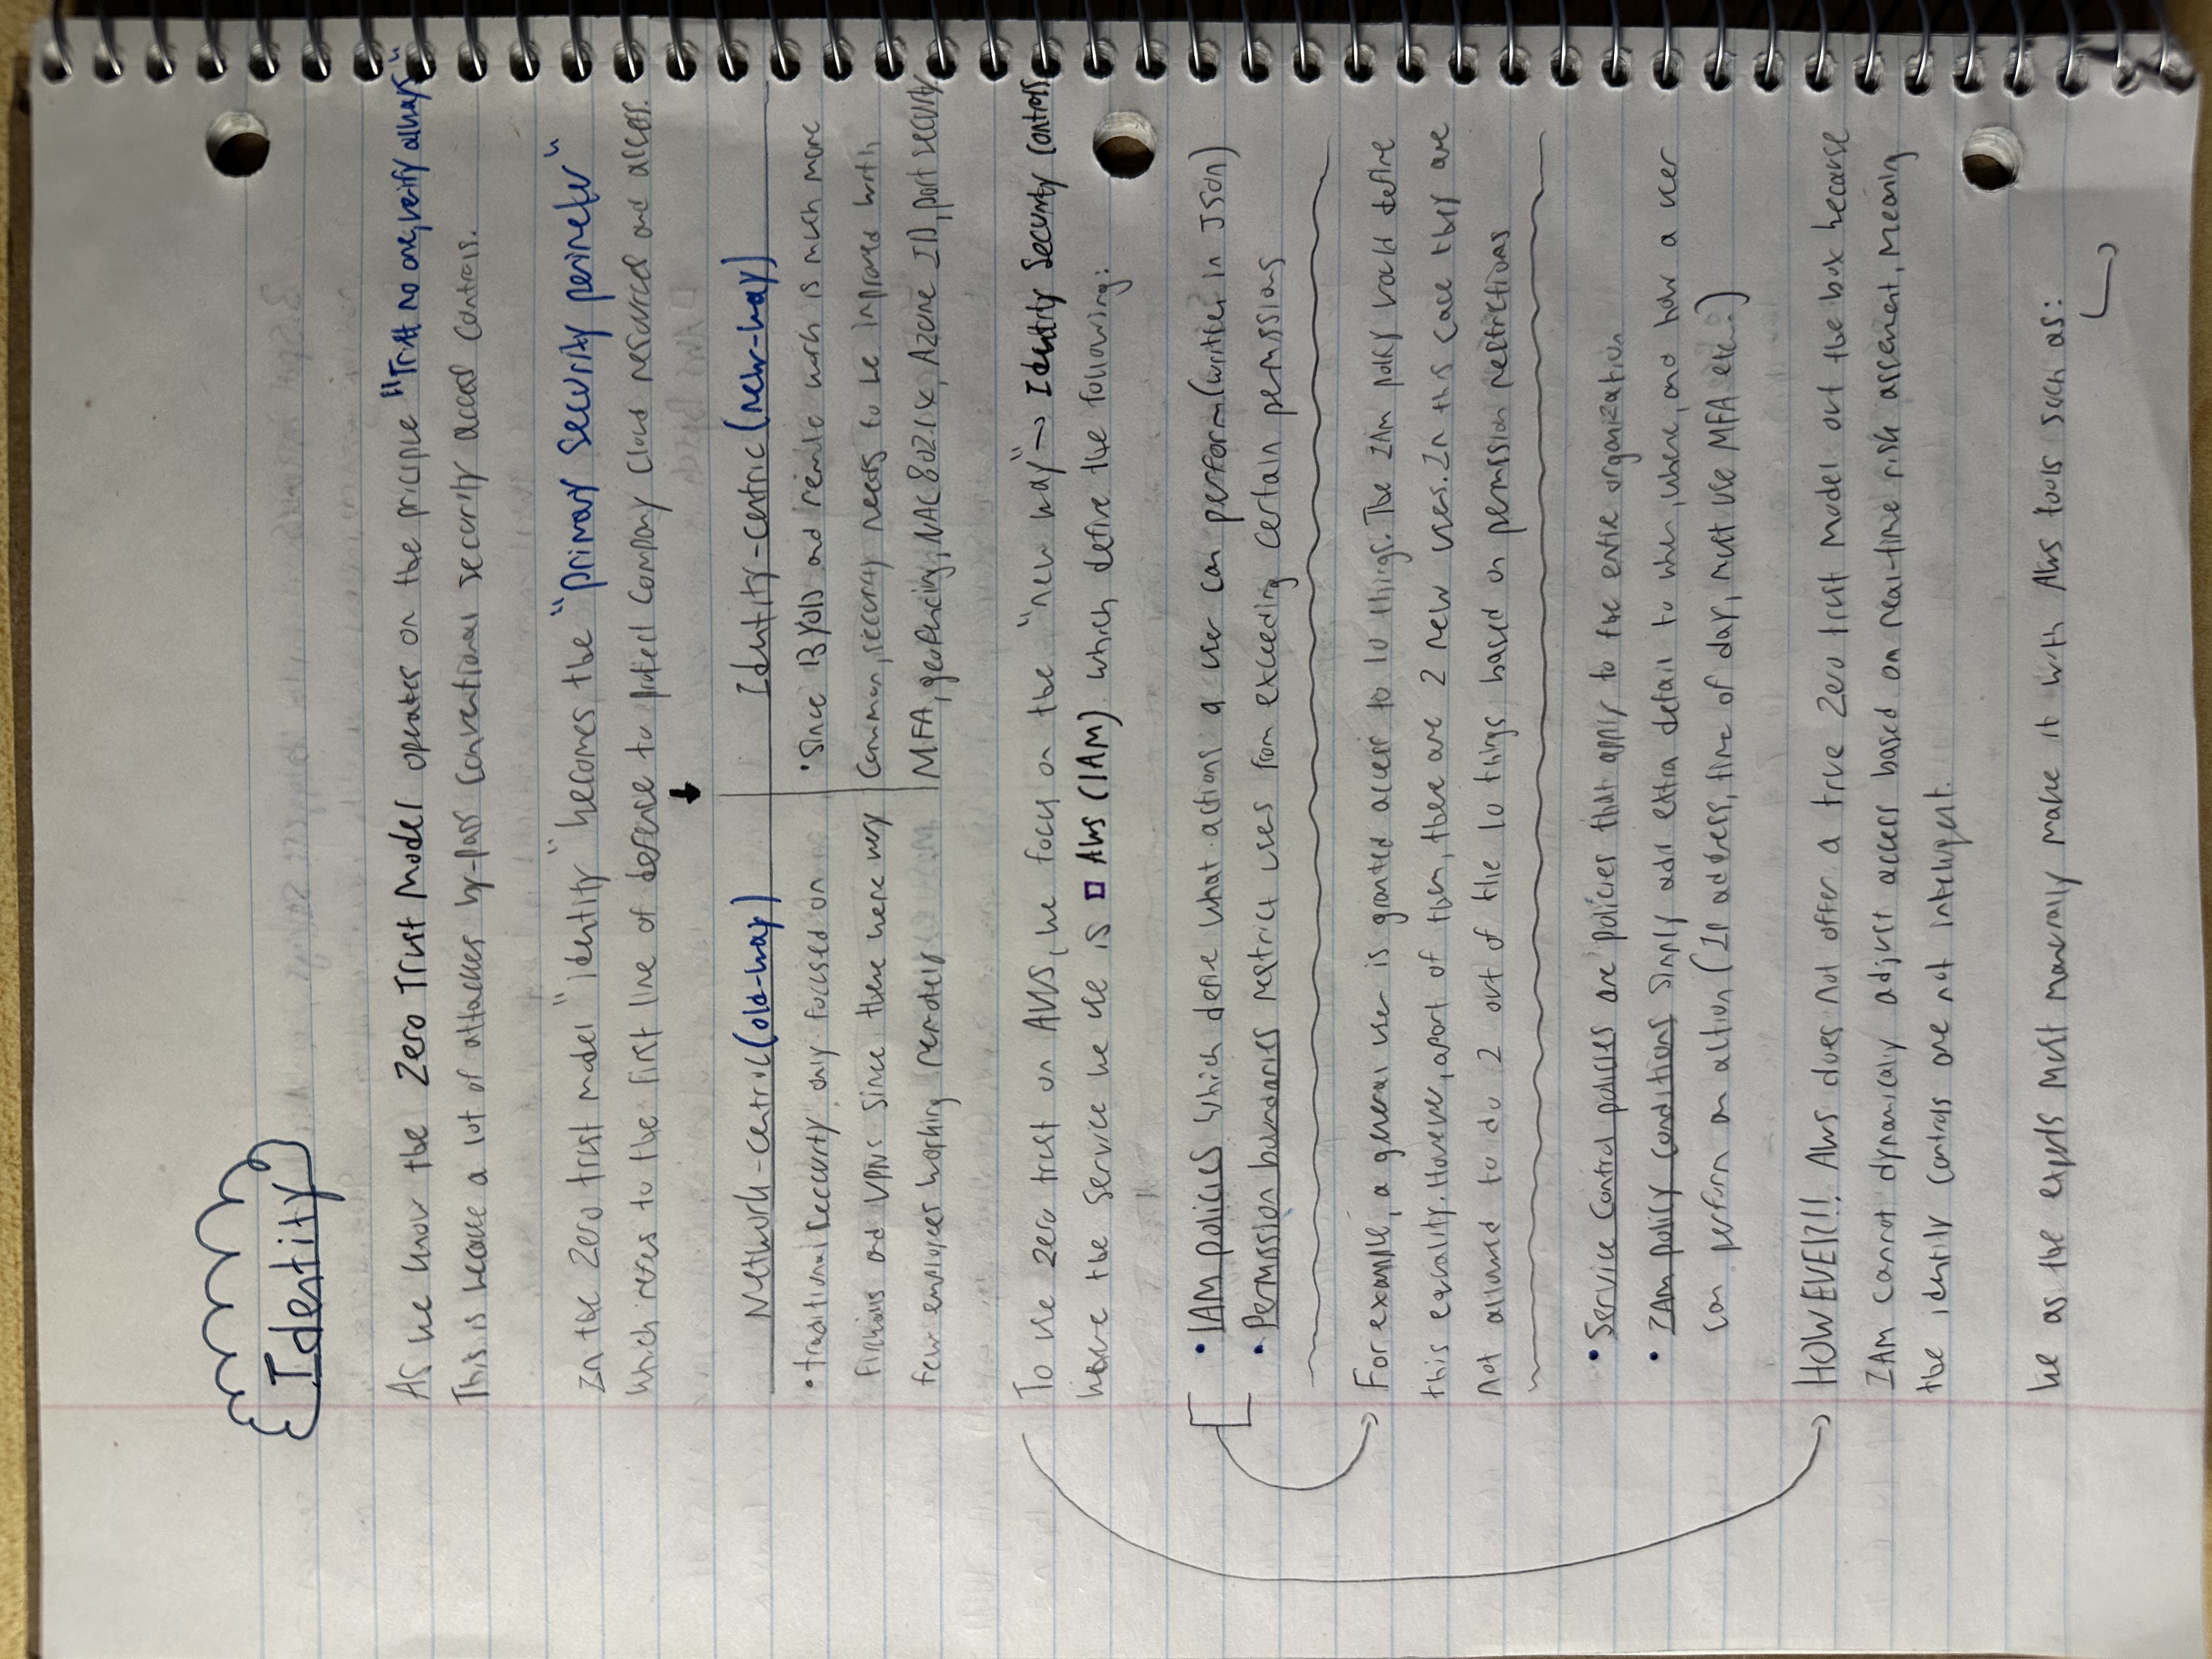 Identity
As we know the Zero Trust Model operates on the priciple "Trust no one, verify always"
This is because a lot of attackes by-pass conventional security access controls.
In the Zero trust model "identity" becomes the "primary security perimeter"
which refes to the first line of defense to protect company cloud resources and access.
Network-centric (old-way)
• traditional seccurty only focused on
firewalls and VPNs since there were very
few employees working remotely
Identity-centric (new-way)
• Since BYOD and remote work is much more
common, security needs to be improved with
MFA, geofencing, NAC 802.1x, Azure ID, port security
To use zero trust on AWS, we focus on the "new way" → Identity Security Controls
where the service we use is □ AWS (IAM) which define the following:
• IAM policies which define what actions a user can perform (written in JSON)
• Permission boundaries restrict users from exceeding certain permissions
For example, a general user is granted access to 10 things. The IAM policy would define
this equality. However, apart of them, there are 2 new users. In this case they are
not allowed to do 2 out of the 10 things based on permission restrictions
• Service Control policies are policies that apply to the entire organization
• IAM policy conditions simply add extra detail to when, where, and how a user
can perform an action (IP address, time of day, must use MFA etc...)
HOWEVER!!! AWS does not offer a true Zero trust Model out the box because
IAM cannot dynamically adjust access based on real-time risk assement, meaning
the identity controls are not inteligent.
We as the experts must manually make it with AWS tools such as: